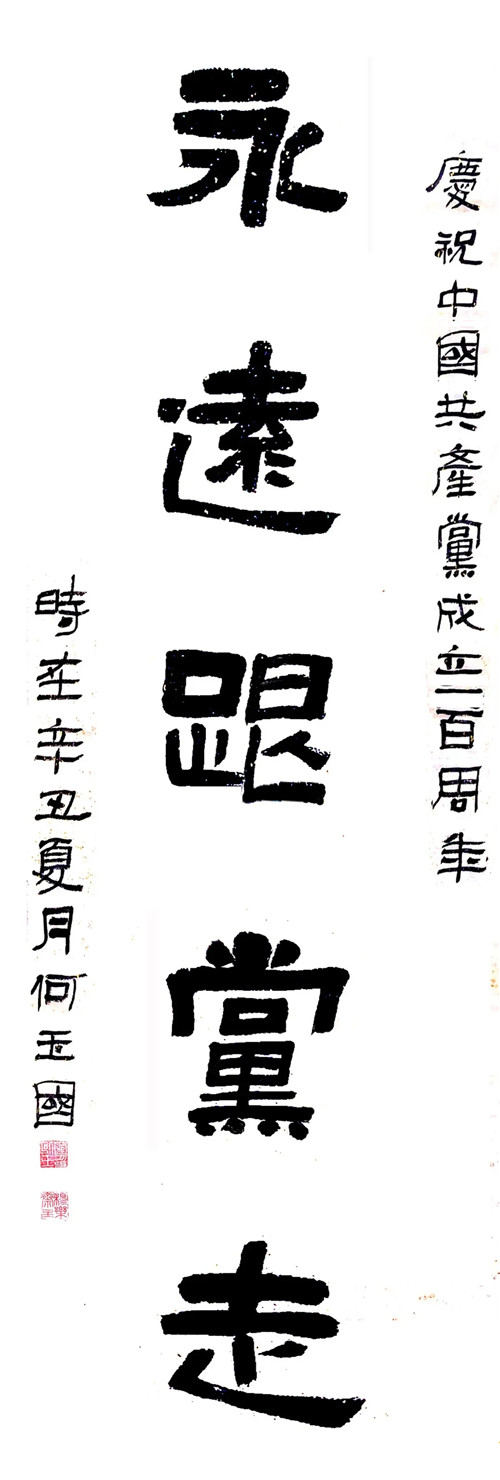 慶祝中國共產黨成立一百周年
永遠跟黨走
時在辛丑夏月何玉國